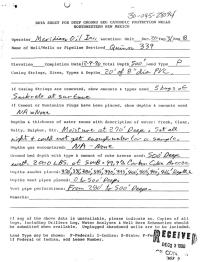 30-045-28094
DATA SHEET FOR DEEP GROUND BED CATHODIC PROTECTION WELLS
NORTHWESTERN NEW MEXICO
Operator Meridian Oil Inc. Location: Unit
Name of Well/Wells or Pipeline Serviced Quinn 339
Elevation Completion Date Total Depth 500' Land Type P
Casing Strings, Sizes, Types & Depths 20' of 8" dia PVC.
If Casing Strings are cemented, show amounts & types used 5 bags of
at surface
If Cement or Bentonite Plugs have been placed, show depths & amounts used
NA None
Depths & thickness of water zones with description of water: Fresh, Clear,
Salty, Sulphur, Etc. Moisture at 290' Deep. Set all
night & could not get enough water for a sample.
Depths gas encountered: NA - None
Ground bed depth with type & amount of coke breeze used: 500' Deep
Depths anodes placed:
Depths vent pipes placed: 0 to 500' Deep.
Vent pipe perforations: From 290 to 500' Deep.
Remarks:
If any of the above data is unavailable, please indicate so. Copies of all
logs, including Drillers Log, Water Analyses & Well Bore Schematics should
be submitted when available. Unplugged abandoned wells are to be included.
Land Type may be shown: F-Federal; I-Indian; S-State; P-Fee
If Federal or Indian, add Lease Number.
RECEIVED